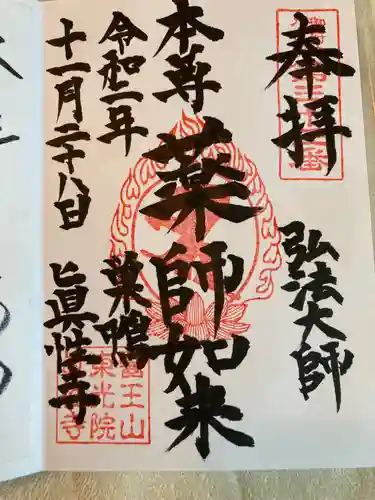 奉拝
弘法大師
本尊
薬師如来
令和二年
巣鴨
十一月二十八日
眞性寺
醫王山
東光院
眞性寺